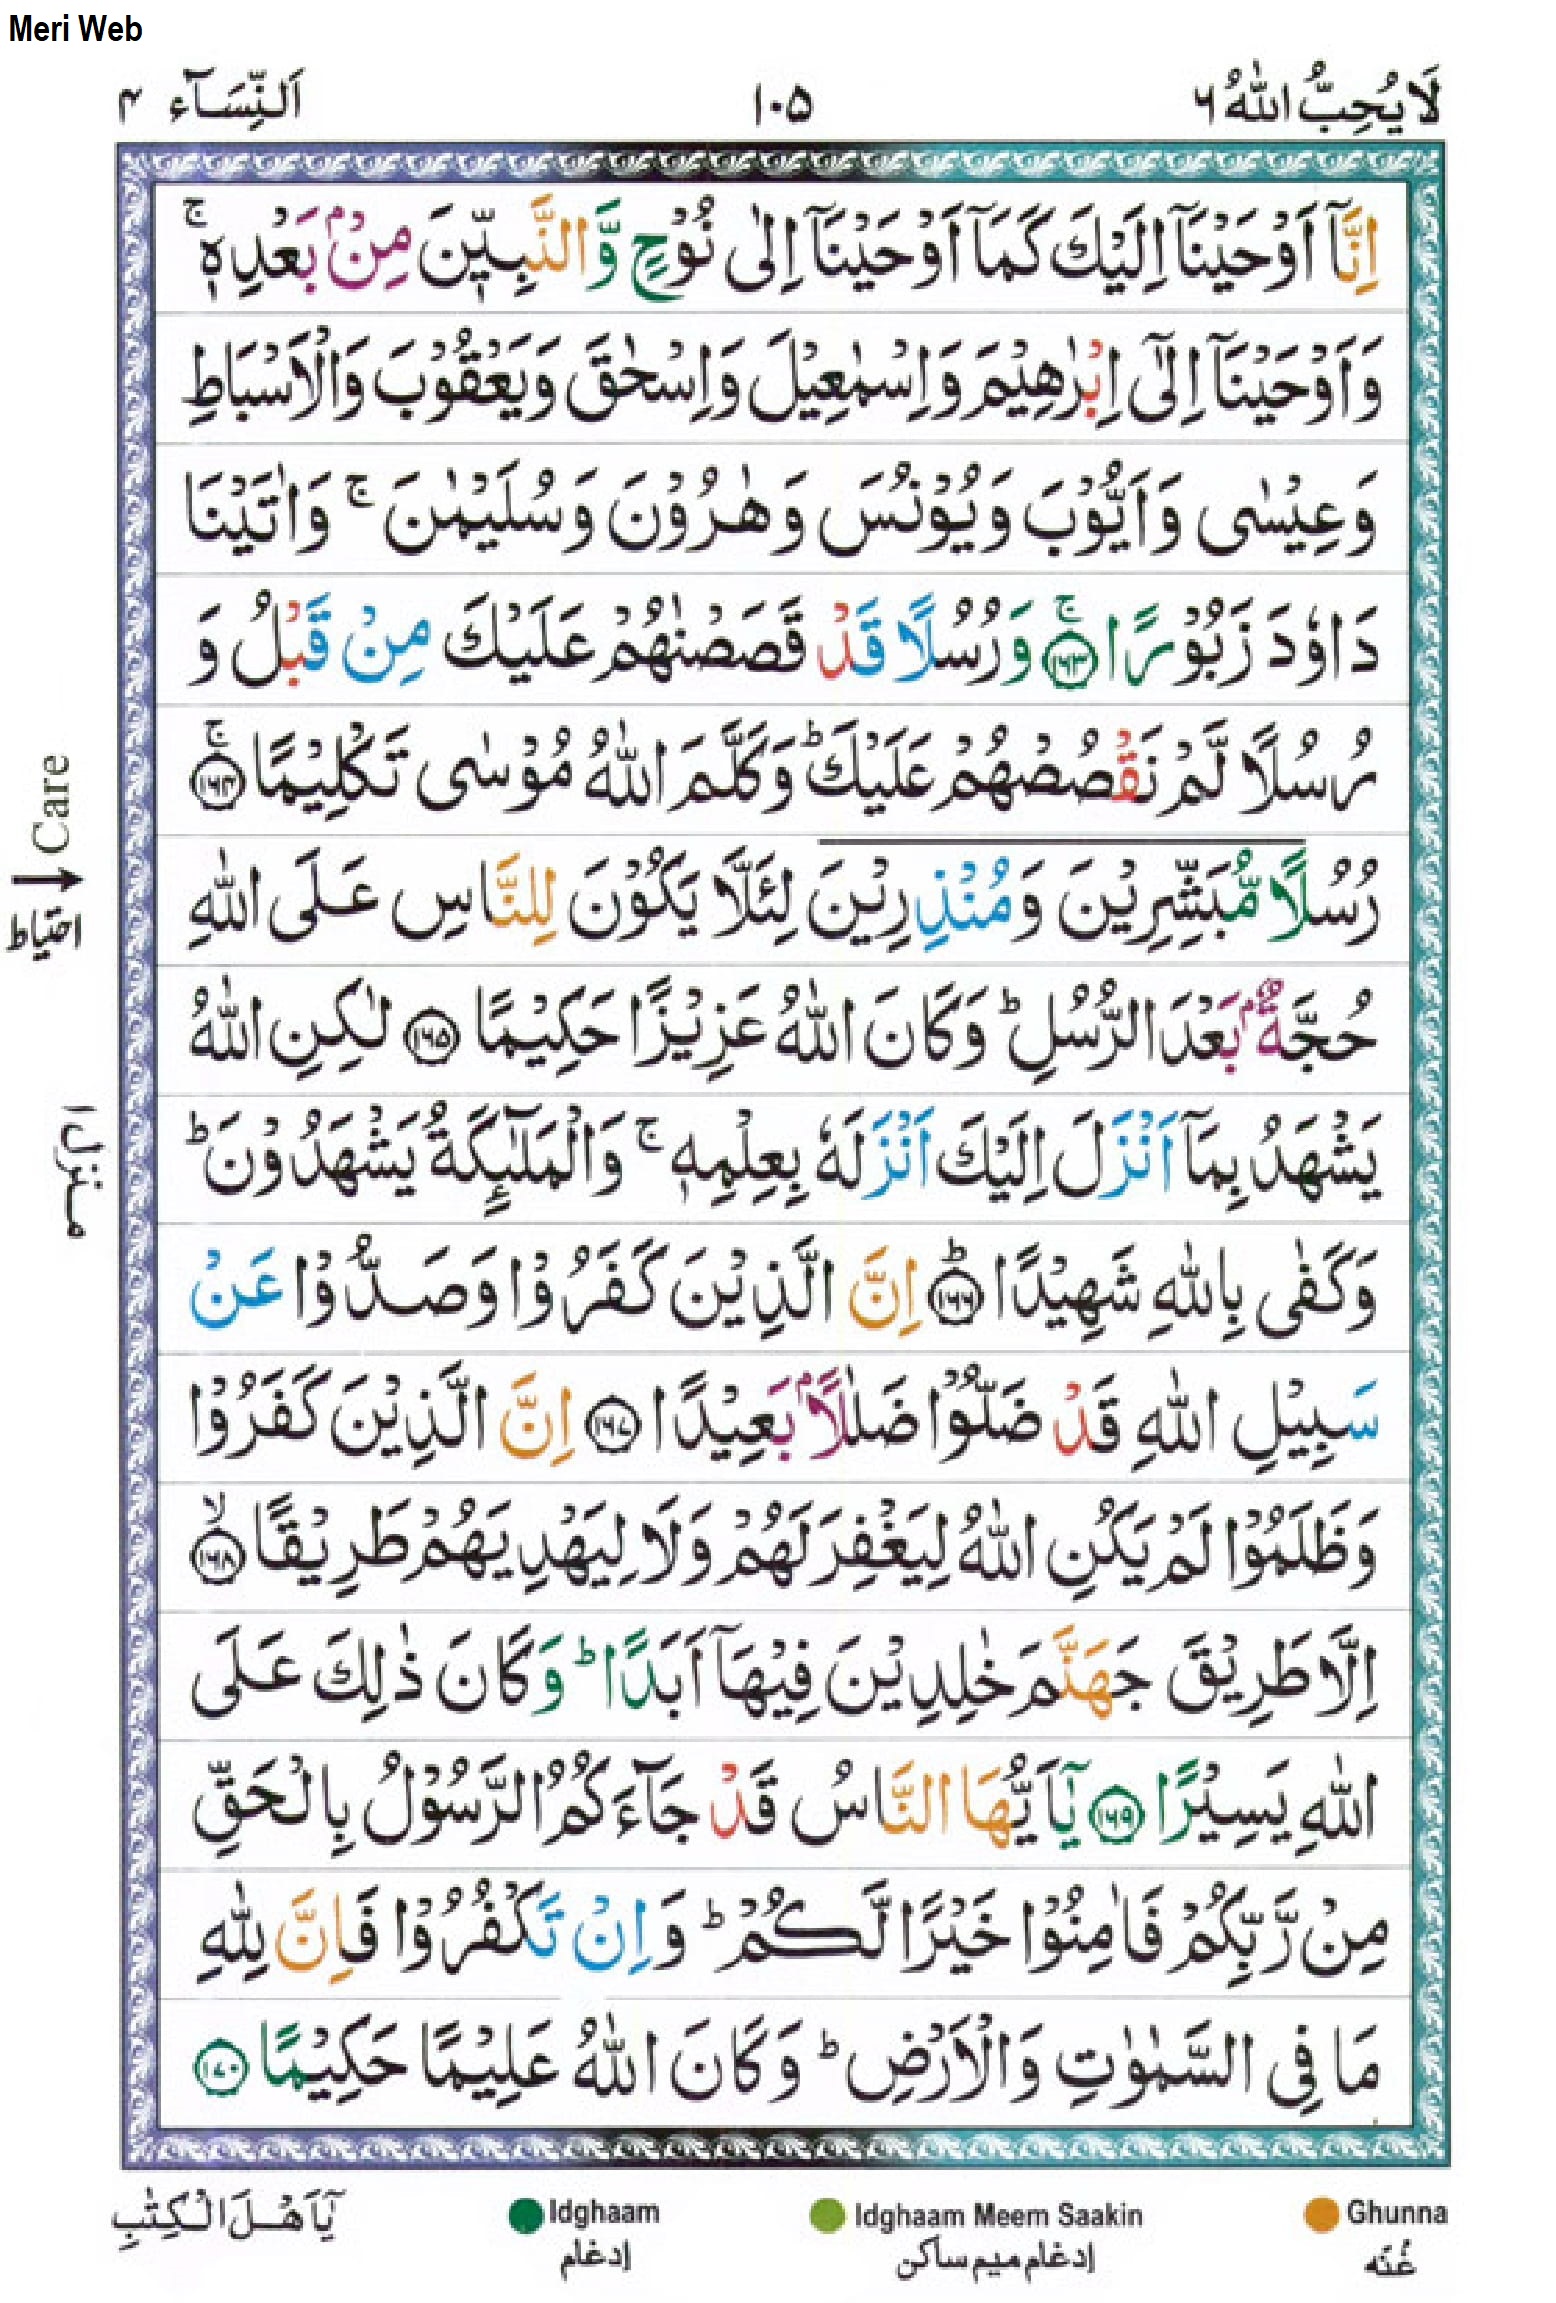 Meri Web
لَا يُحِبُّ اللّٰهُ ٦
١٠٥
اَلنِّسَآء ٤
اِنَّاۤ اَوْحَيْنَاۤ اِلَيْكَ كَمَاۤ اَوْحَيْنَاۤ اِلٰى نُوْحٍ وَّالنَّبِيّٖنَ مِنْۢ بَعْدِهٖ ۚ
وَاَوْحَيْنَاۤ اِلٰۤى اِبْرٰهِيْمَ وَاِسْمٰعِيْلَ وَاِسْحٰقَ وَيَعْقُوْبَ وَالْاَسْبَاطِ
وَعِيْسٰى وَاَيُّوْبَ وَيُوْنُسَ وَهٰرُوْنَ وَسُلَيْمٰنَ ۚ وَاٰتَيْنَا
دَاوٗدَ زَبُوْرًا ۚ ﴿١٦٣﴾ وَرُسُلًا قَدْ قَصَصْنٰهُمْ عَلَيْكَ مِنْ قَبْلُ وَ
رُسُلًا لَّمْ نَقْصُصْهُمْ عَلَيْكَ ؕ وَكَلَّمَ اللّٰهُ مُوْسٰى تَكْلِيْمًا ۚ ﴿١٦٤﴾
رُسُلًا مُّبَشِّرِيْنَ وَمُنْذِرِيْنَ لِئَلَّا يَكُوْنَ لِلنَّاسِ عَلَى اللّٰهِ
حُجَّةٌۢ بَعْدَ الرُّسُلِ ؕ وَكَانَ اللّٰهُ عَزِيْزًا حَكِيْمًا ﴿١٦٥﴾ لٰكِنِ اللّٰهُ
يَشْهَدُ بِمَاۤ اَنْزَلَ اِلَيْكَ اَنْزَلَهٗ بِعِلْمِهٖ ۚ وَالْمَلٰٓئِكَةُ يَشْهَدُوْنَ ؕ
وَكَفٰى بِاللّٰهِ شَهِيْدًا ؕ ﴿١٦٦﴾ اِنَّ الَّذِيْنَ كَفَرُوْا وَصَدُّوْا عَنْ
سَبِيْلِ اللّٰهِ قَدْ ضَلُّوْا ضَلٰلًاۢ بَعِيْدًا ﴿١٦٧﴾ اِنَّ الَّذِيْنَ كَفَرُوْا
وَظَلَمُوْا لَمْ يَكُنِ اللّٰهُ لِيَغْفِرَ لَهُمْ وَلَا لِيَهْدِيَهُمْ طَرِيْقًا ۙ ﴿١٦٨﴾
اِلَّا طَرِيْقَ جَهَنَّمَ خٰلِدِيْنَ فِيْهَاۤ اَبَدًا ؕ وَكَانَ ذٰلِكَ عَلَى
اللّٰهِ يَسِيْرًا ﴿١٦٩﴾ يٰۤاَيُّهَا النَّاسُ قَدْ جَآءَكُمُ الرَّسُوْلُ بِالْحَقِّ
مِنْ رَّبِّكُمْ فَاٰمِنُوْا خَيْرًا لَّكُمْ ؕ وَاِنْ تَكْفُرُوْا فَاِنَّ لِلّٰهِ
مَا فِى السَّمٰوٰتِ وَالْاَرْضِ ؕ وَكَانَ اللّٰهُ عَلِيْمًا حَكِيْمًا ﴿١٧٠﴾
Care
احتياط
منزل ١
يٰۤاَهْلَ الْكِتٰبِ
Idghaam
إدغام
Idghaam Meem Saakin
إدغام ميم ساكن
Ghunna
غُنّه